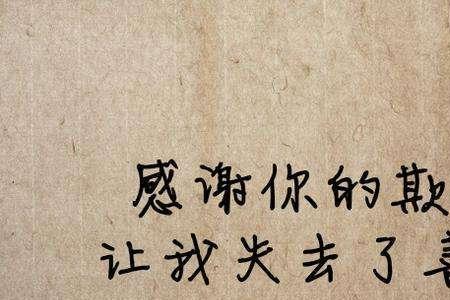 感谢你的欺
让我失去了